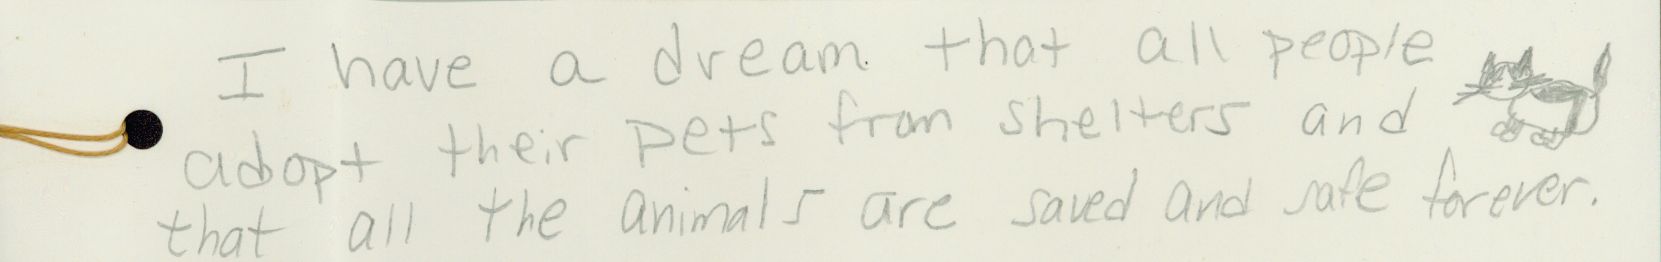 I have a dream that all people
adopt their pets from shelters and
that all the animals are saved and safe forever.